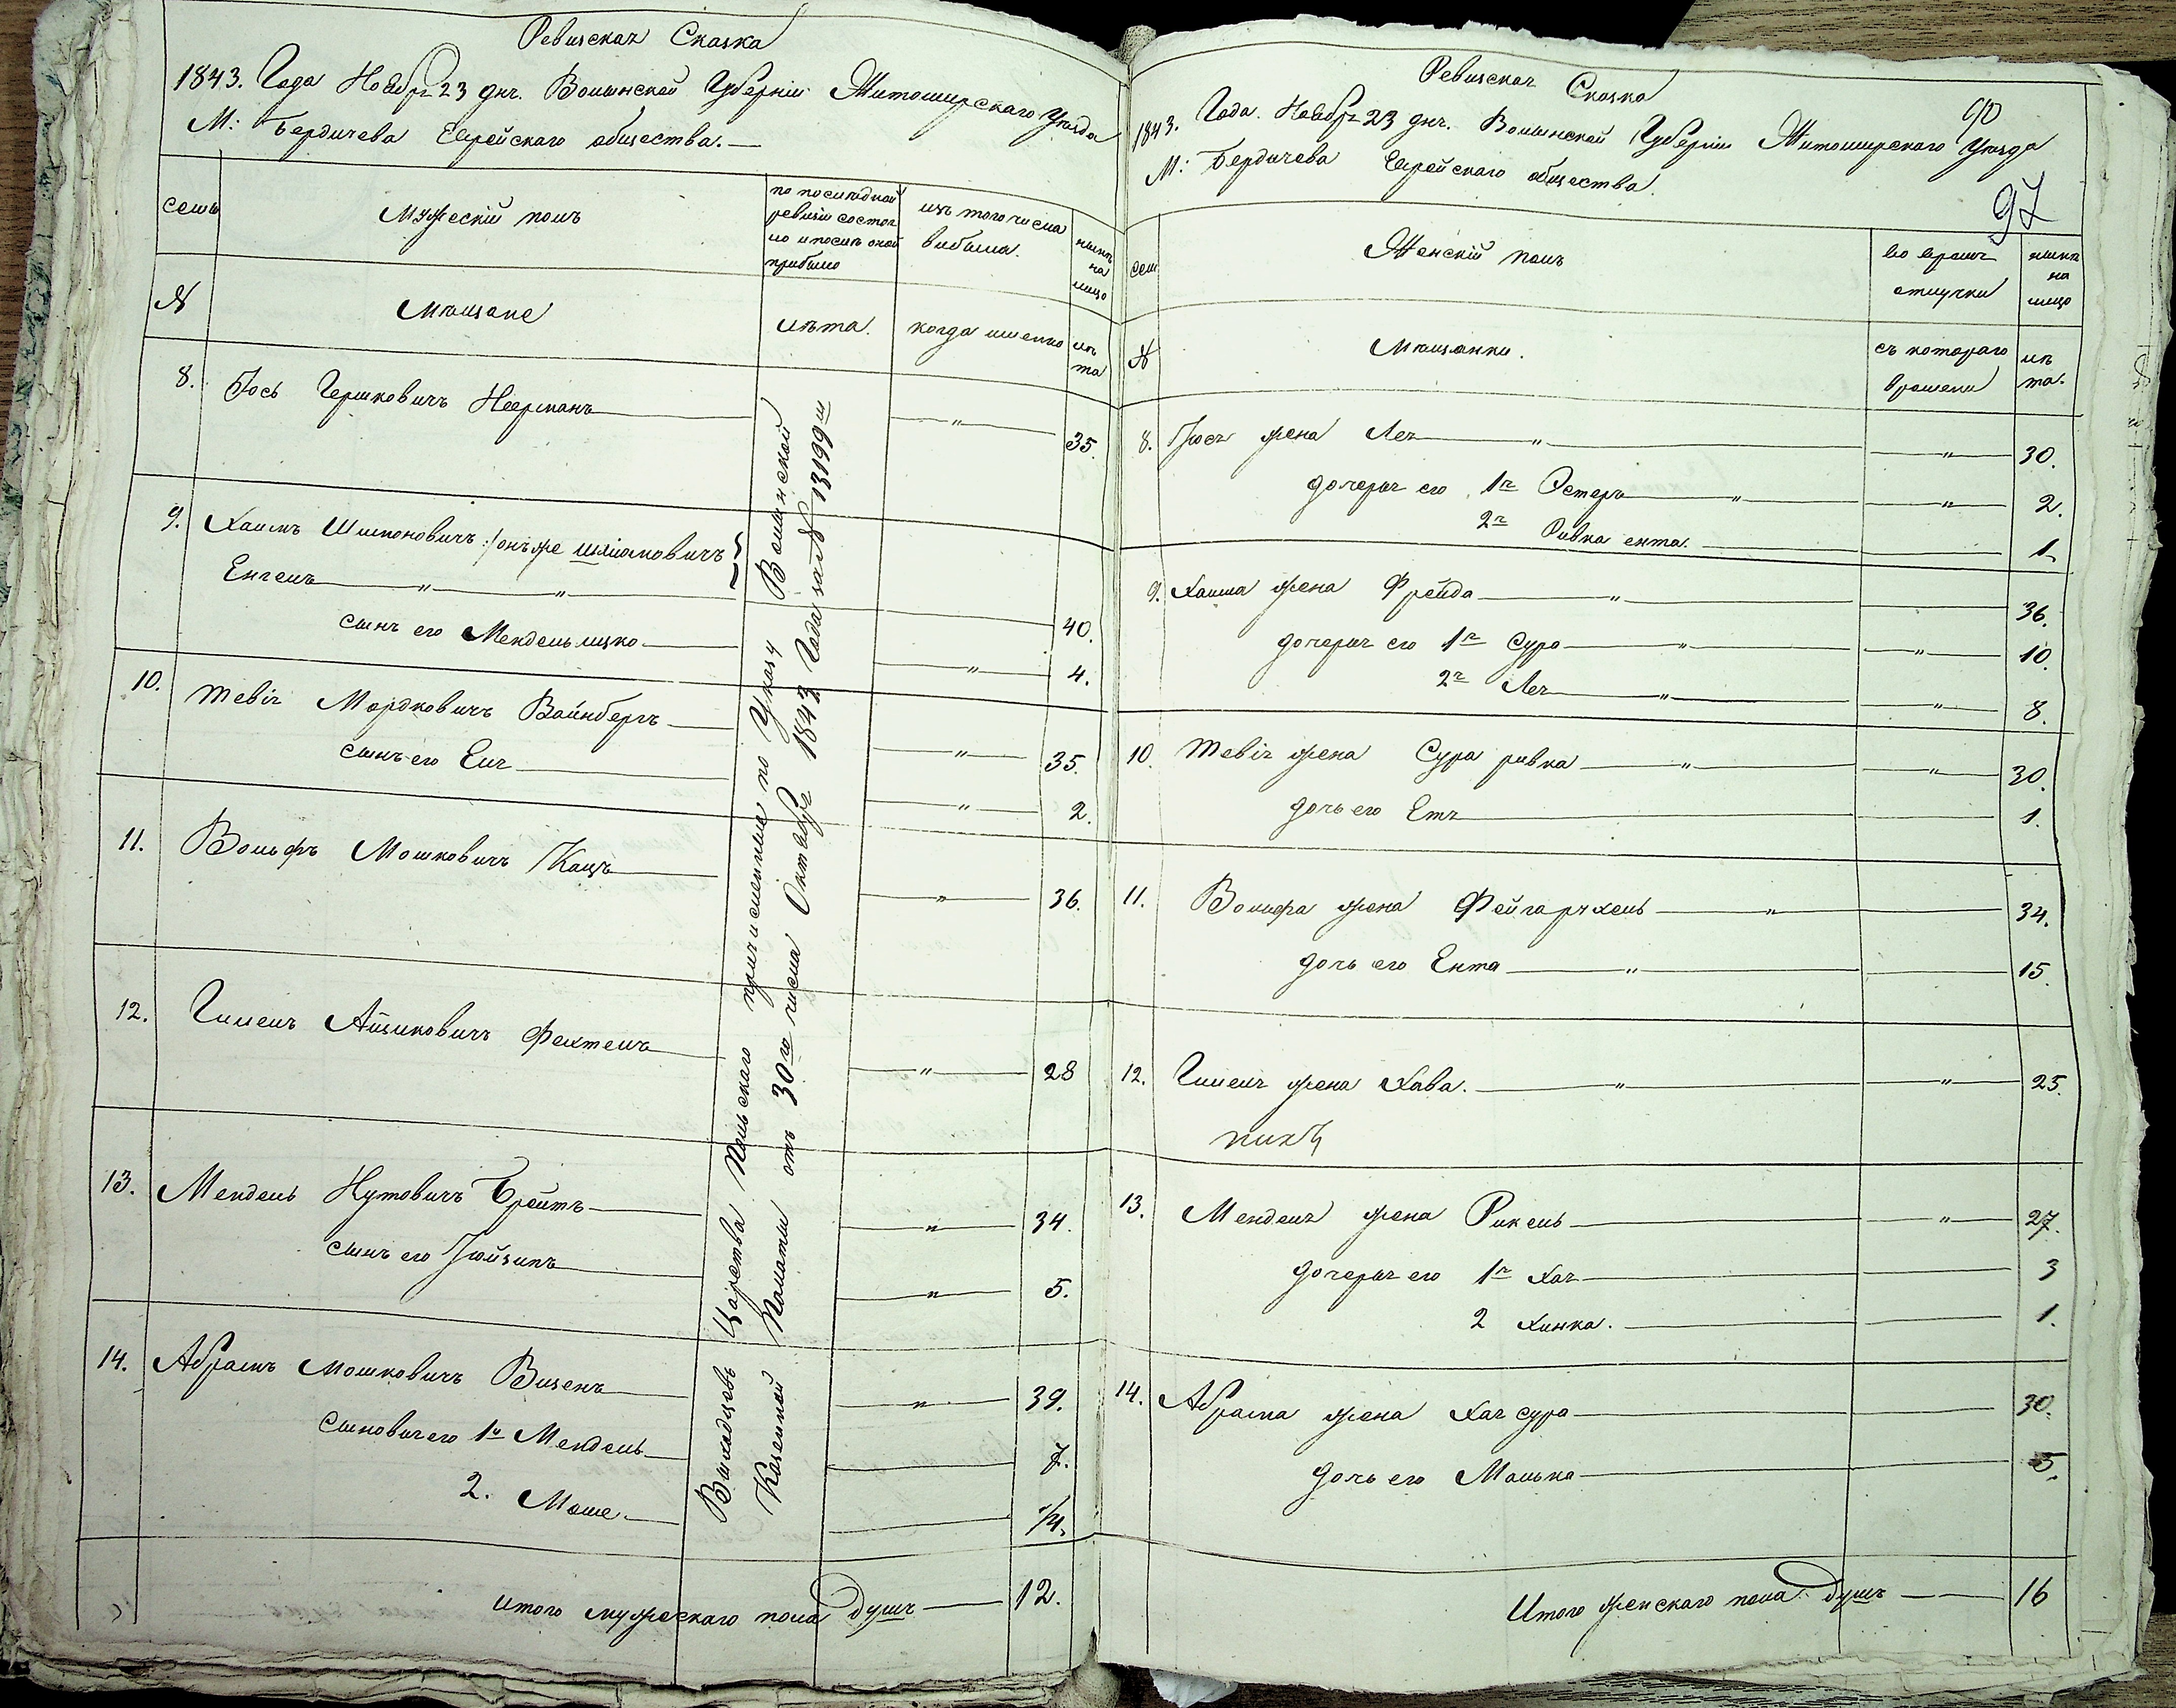 Ревизская Сказка
1843. Года Ноября 23 дня. Волынской Губерніи Житомирскаго Уѣзда
М: Бердичева Еврейскаго общества.—
семьи
Мужескій полъ
по послѣдней ревизіи состояло и послѣ оной прибыло
изъ того числа выбыло.
нынѣ на лицо
№
Мѣщане
лѣта.
когда именно
лѣта
8. Іось Гершковичъ Неерманъ — " — 35.
9. Хаимъ Шимоновичъ :/онъ же шліомовичъ
Енгель — " — " — 40.
сынъ его Мендель ицко — " — 4.
10. Тевія Мордковичъ Вайнбергъ — " — 35.
сынъ его Еля — " — 2.
11. Вольфъ Мошковичъ Кацъ — " — 36.
12. Гилель Айзиковичъ Фехтель — " — 28
13. Мендель Нутовичъ Брейтъ — " — 34.
сынъ его Іойзипъ — " — 5.
14. Абрамъ Мошковичъ Визенъ — " — 39.
сыновья его 1й Мендель — 7.
2. Моше — 1/4.
Выходцевъ Царства Польскаго причисленные по Указу Волынской
Казенной Палаты отъ 30го числа Октября 1843 Года за № 13199м
итого мужескаго пола душъ — 12.
Ревизская Сказка
90
1843. Года. Ноября 23 дня. Волынской Губерніи Житомирскаго Уѣзда
М: Бердичева Еврейскаго общества.
97
сем
Женскій полъ
во время отлучки
нынѣ на лицо
№
Мѣщанки.
съ котораго времени
лѣта.
8. Іося жена Лея — " — " — 30.
дочери его 1я Эстеръ — " — " — 2.
2я Ривка ента. — 1.
9. Хаима жена Фрейда — " — 36.
дочери его 1я Сура — " — " — 10.
2я Лея — " — " — 8.
10. Тевія жена Сура ривка — " — " — 30.
дочь его Етя — 1.
11. Вольфа жена Фейга рухель — " — 34.
дочь его Ента — " — 15.
12. Гилеля жена Хава. — " — " — 25.
13. Менделя жена Рикель — " — 27.
дочери его 1я Хая — 3
2 Хинка. — 1.
14. Абрама жена Хая сура — 30.
дочь его Малька — 5.
Итого женскаго пола душъ — 16